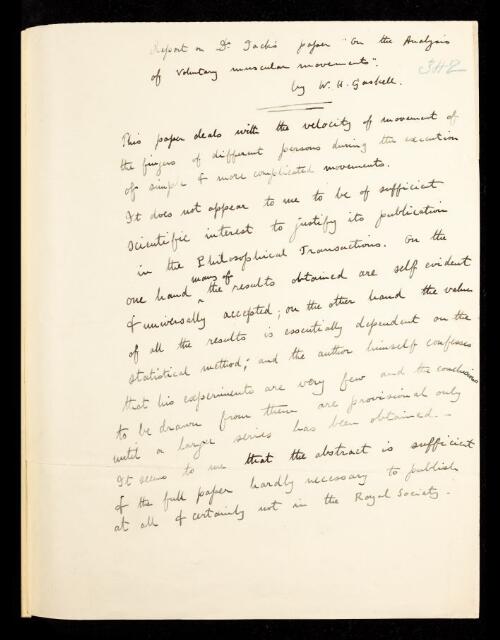 Report on Dr Jack's paper "On the Analysis
of voluntary muscular movements".
by W. H. Gaskell.
342
This paper deals with the velocity of movement of
the fingers of different persons during the execution
of simple & more complicated movements.
It does not appear to me to be of sufficient
scientific interest to justify its publication
in the Philosophical Transactions. On the
one hand many of the results obtained are self evident
& universally accepted; on the other hand the value
of all the results is essentially dependent on the
statistical method; and the author himself confesses
that his experiments are very few and the conclusions
to be drawn from them are provisional only
until a larger series has been obtained. –
It seems to me that the abstract is sufficient
& the full paper hardly necessary to publish
at all & certainly not in the Royal Society.